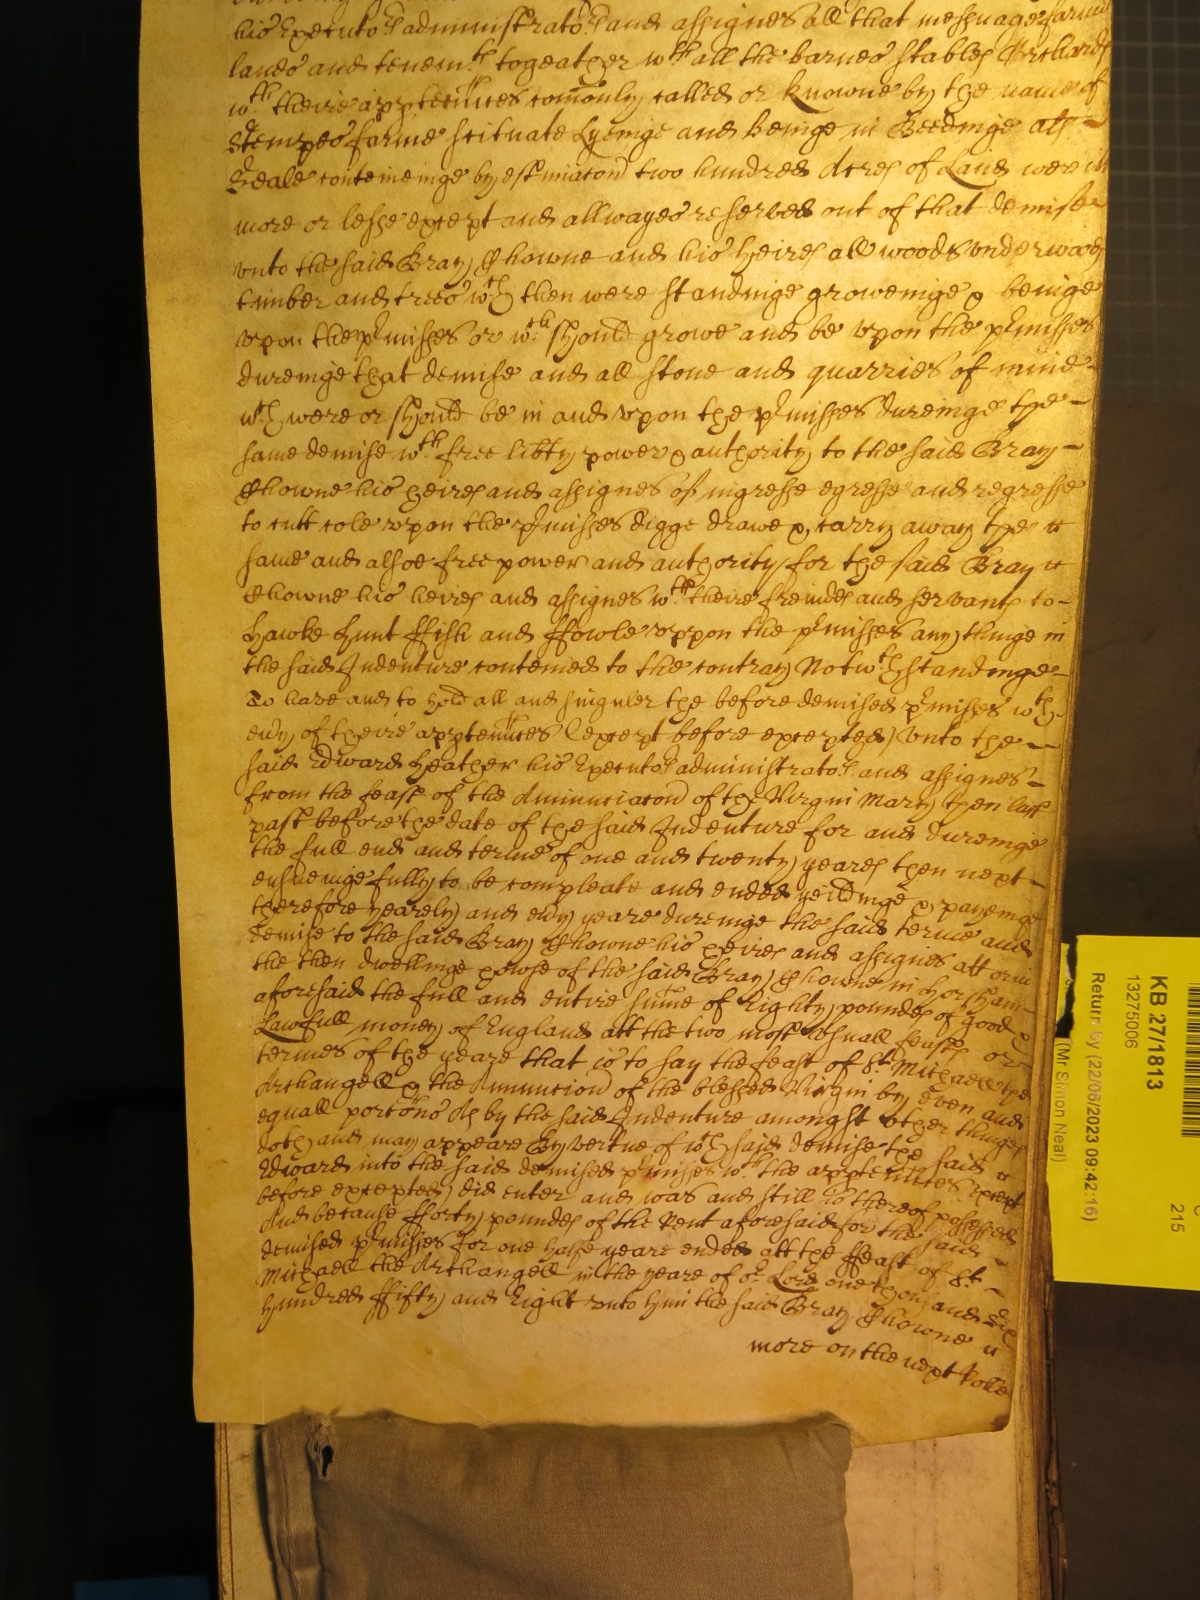 his Executors administrators and assignes all that messuage farme
lands and tenemts togeather wth all the barnes stables Orchards
wth theire apptennces comonly called or knowne by the name of
Stempes farme scituate Lyeinge and beinge in Beedinge als
Seale conteineinge by estimacon two hundred Acres of Land were it
more or lesse except and allwayes reserved out of that demise
vnto the said Bray Chowne and his heires all woods vnderwoods
timber and trees wch then were standinge groweinge & beinge
vpon the pr misses or wch should growe and be vpon the pr misses
dureinge that demise and all stone and quarries of mine
wch were or should be in and vpon the pr misses dureinge the
same demise wth free libty power & authority to the said Bray
Chowne his heires and assignes of ingresse egresse and regresse
to cutt cole vpon the pr misses digge drawe & carry away the
same and alsoe free power and authority for the said Bray
Chowne his heires and assignes wth theire freindes and servants to
hawke hunt ffish and ffowle vppon the pr misses any thinge in
the said Indenture conteined to the contrary Notwthstandinge
To have and to hold all and singuler the before demised pr misses wth
evy of theire apptennces (except before excepted) vnto the
said Edward Heather his Executors administrators and assignes
from the feast of the Annunciacon of the Virgin Mary then last
past before the date of the said Indenture for and dureinge
the full end and terme of one and twenty yeares then next
ensueinge fully to be compleate and ended yeildinge & payeinge
therefore yearely and evy yeare dureinge the said terme and
demise to the said Bray Chowne his heires and assignes att or in
the then dwellinge howse of the said Bray Chowne in Horsham
aforesaid the full and entire sume of Eighty poundes of good &
Lawfull money of England att the two most vsuall feasts or
termes of the yeare that is to say the feast of St Michaell the
Archangell & the Annuncion of the blessed Virgin by even and
equall porcons As by the said Indenture amongst other thinges
doth and may appeare By vertue of wch said demise the said
Edward into the said demised pr misses wth the apptennces except
before excepted did enter and was and still is thereof possessed
And because fforty poundes of the Rent aforesaid for the said
demised pr misses for one halfe yeare ended att the ffeast of St
Michaell the Archangell in the yeare of or Lord one thousand six
hundred ffifty and Eight vnto him the said Bray Chowne
more on the next Rolle
KB 27/1813
13275006
Return by (22/06/2023 09:42:16)
(Mr Simon Neal)
215